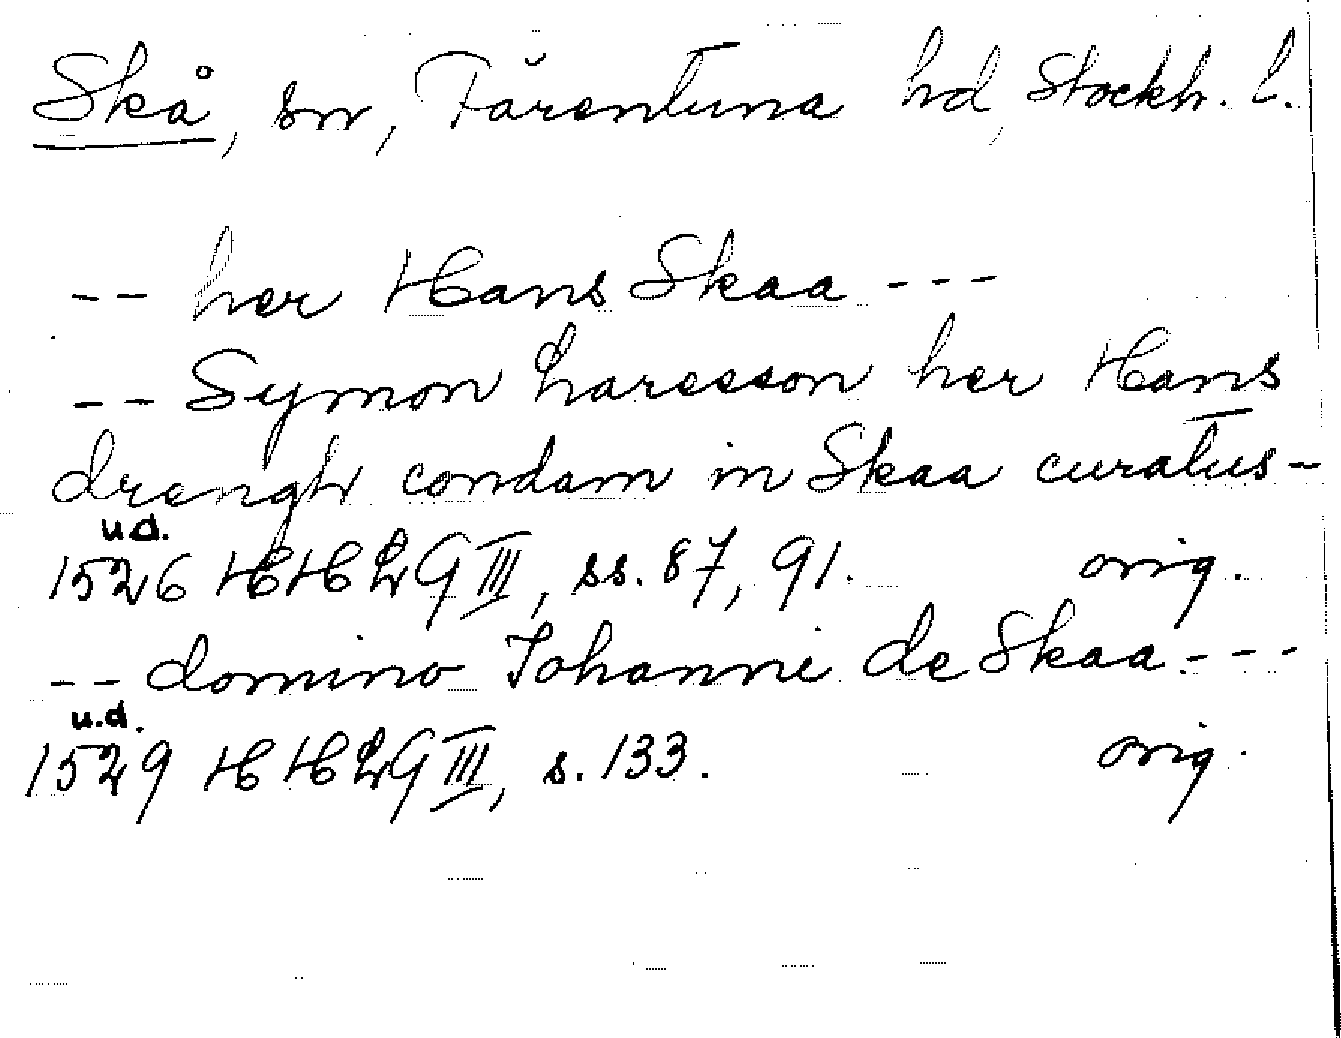 Skå, sn, Färentuna hd, Stockh. l.
-- her Hans Skaa ---
-- Symon Laresson her Hans
drengh condam in Skaa curatus-
u.d.
1526 HHLG III, ss. 87, 91. orig.
-- domino Johanni de Skaa ---
u.d.
1529 HHLG III, s. 133. orig.